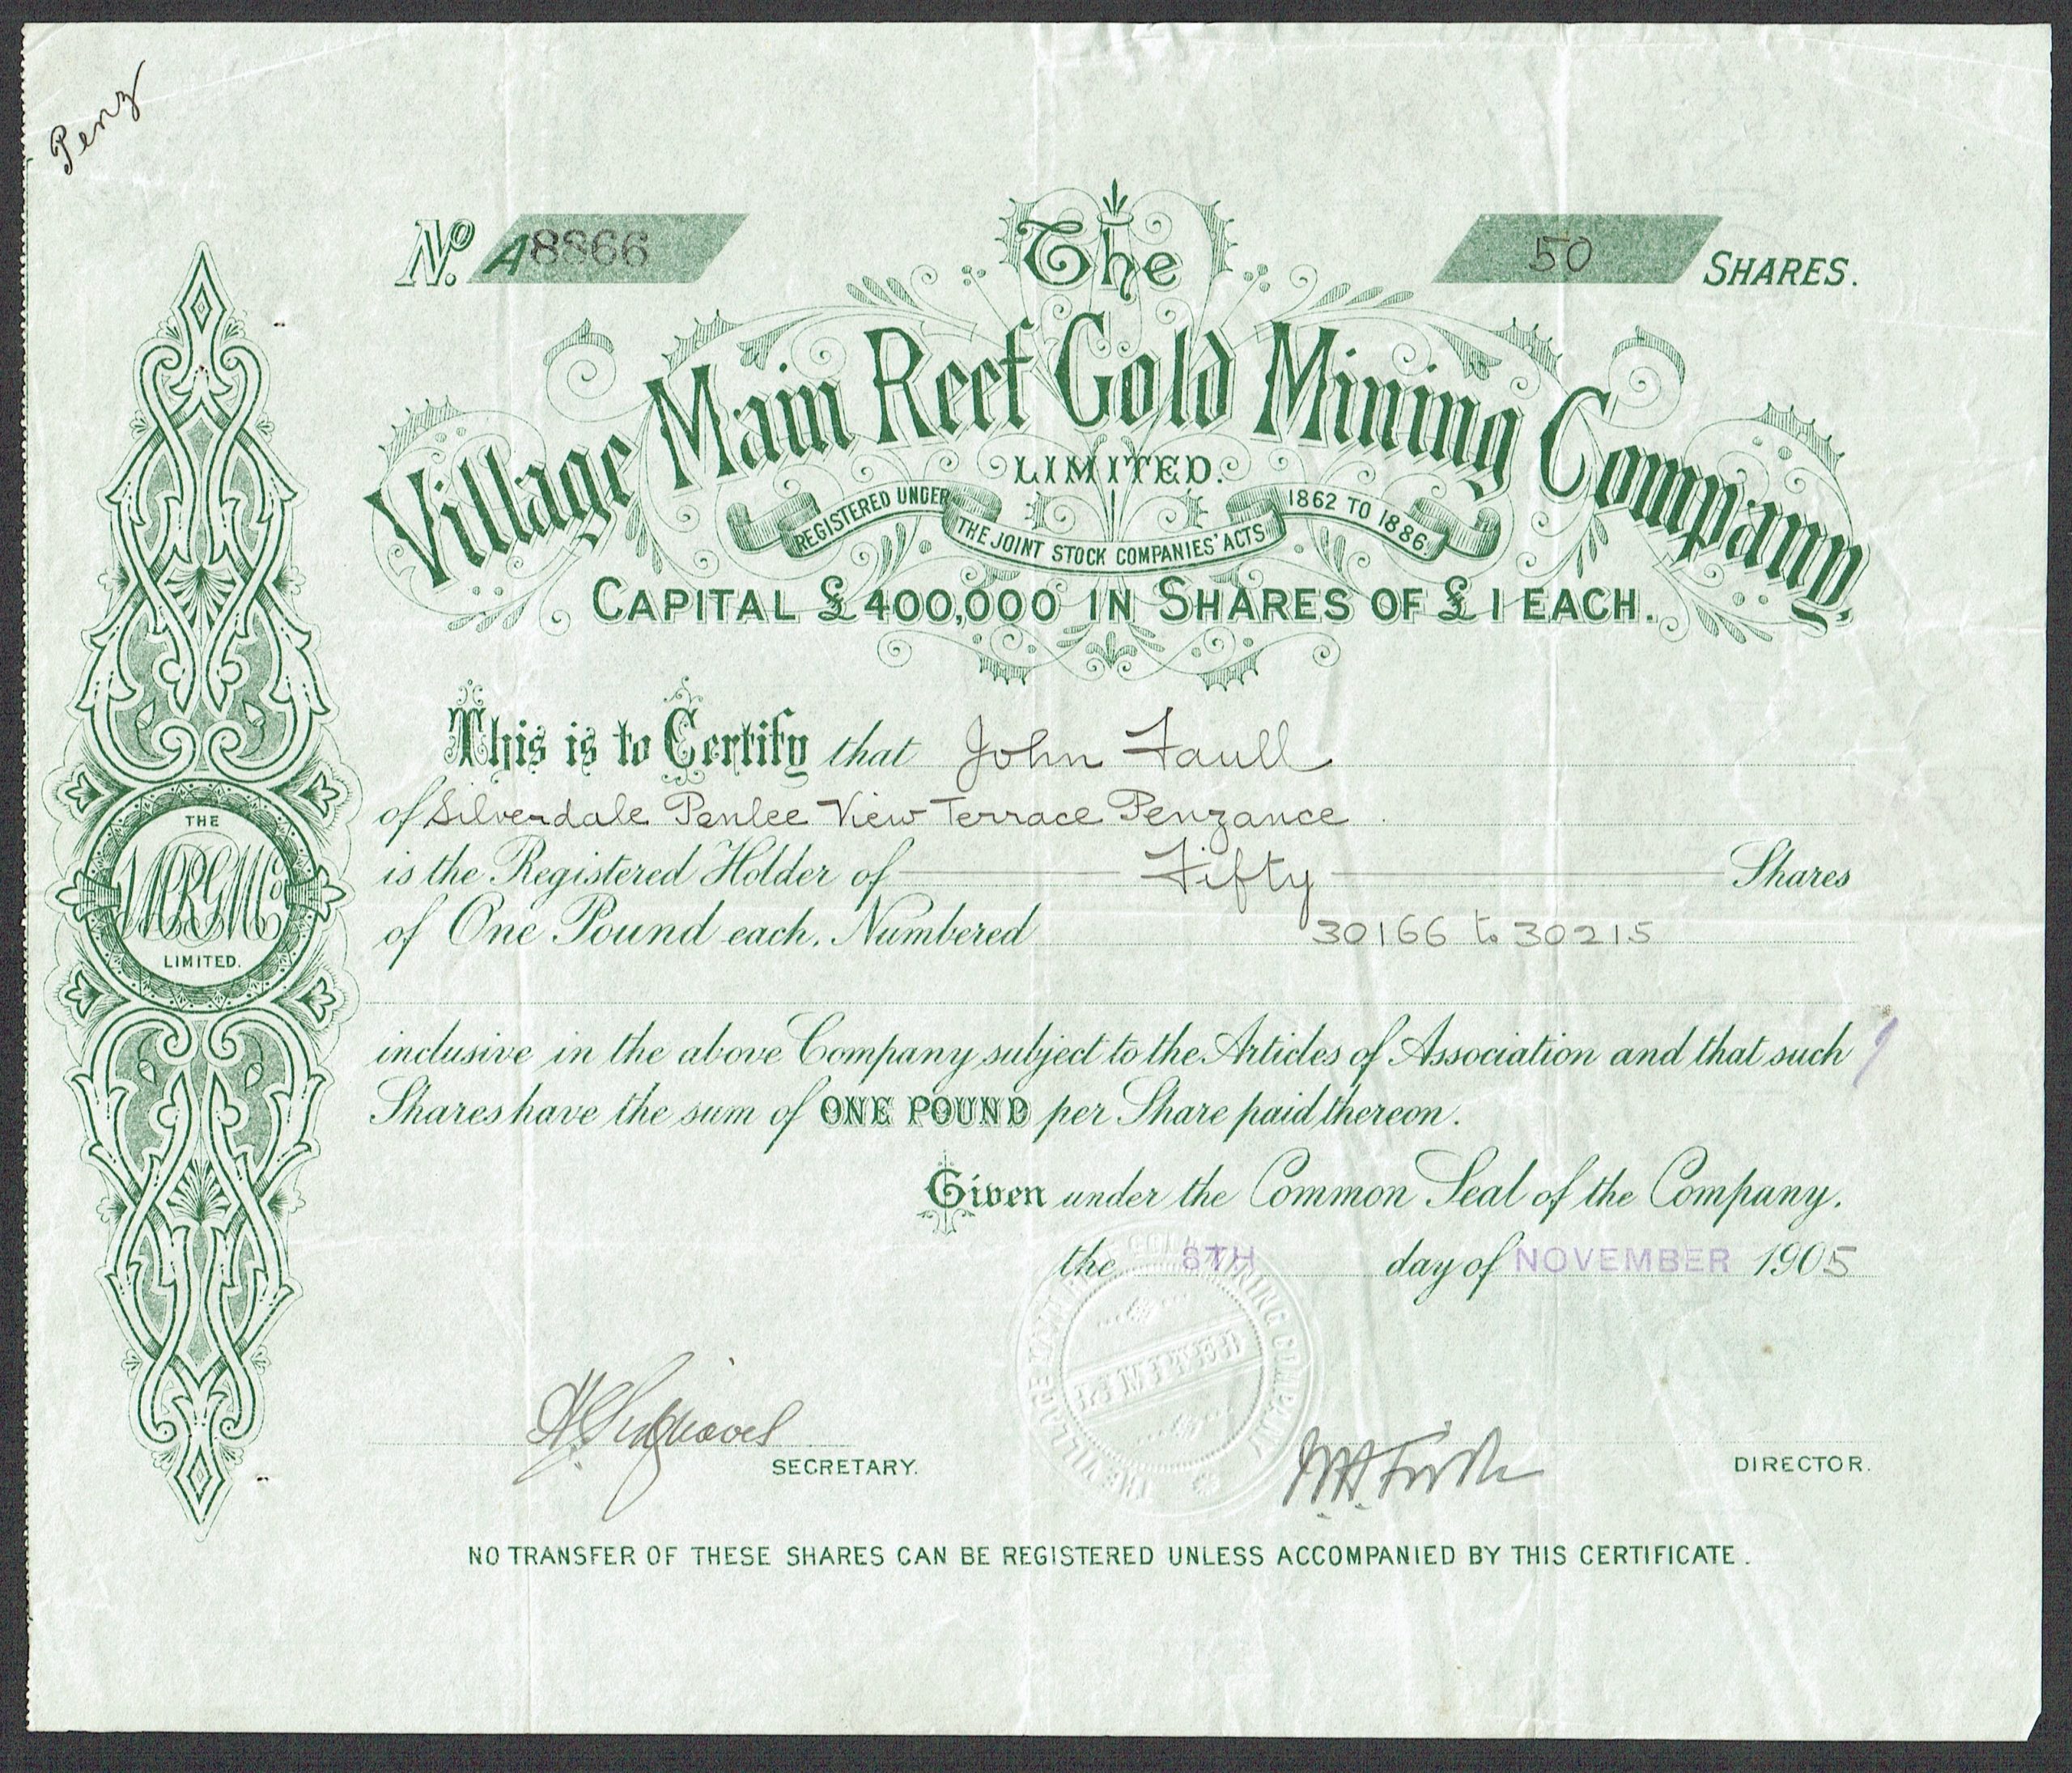 Penz
No. A8866
50 SHARES.
The
Village Main Reef Gold Mining Company,
LIMITED.
REGISTERED UNDER THE JOINT STOCK COMPANIES' ACTS 1862 TO 1886.
CAPITAL £400,000 IN SHARES OF £1 EACH.
This is to Certify that John Faull
of Silverdale Penlee View Terrace Penzance
is the Registered Holder of Fifty Shares
of One Pound each, Numbered 30166 to 30215
THE
VMRGMCo
LIMITED.
inclusive in the above Company subject to the Articles of Association and that such
Shares have the sum of ONE POUND per Share paid thereon.
Given under the Common Seal of the Company,
the 8TH day of NOVEMBER 1905
THE VILLAGE MAIN REEF GOLD MINING COMPANY
LIMITED
SECRETARY.
DIRECTOR.
NO TRANSFER OF THESE SHARES CAN BE REGISTERED UNLESS ACCOMPANIED BY THIS CERTIFICATE.